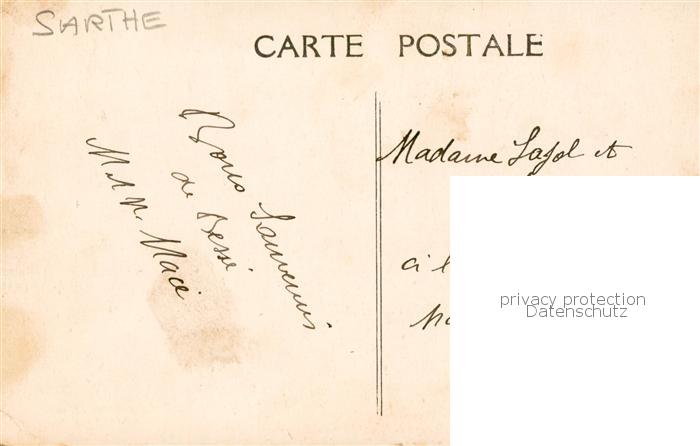 SARTHE
CARTE POSTALE
Bons Souvenirs
de Bessé
M et Me Macé
Madame Lajol et
à l
privacy protection
Datenschutz